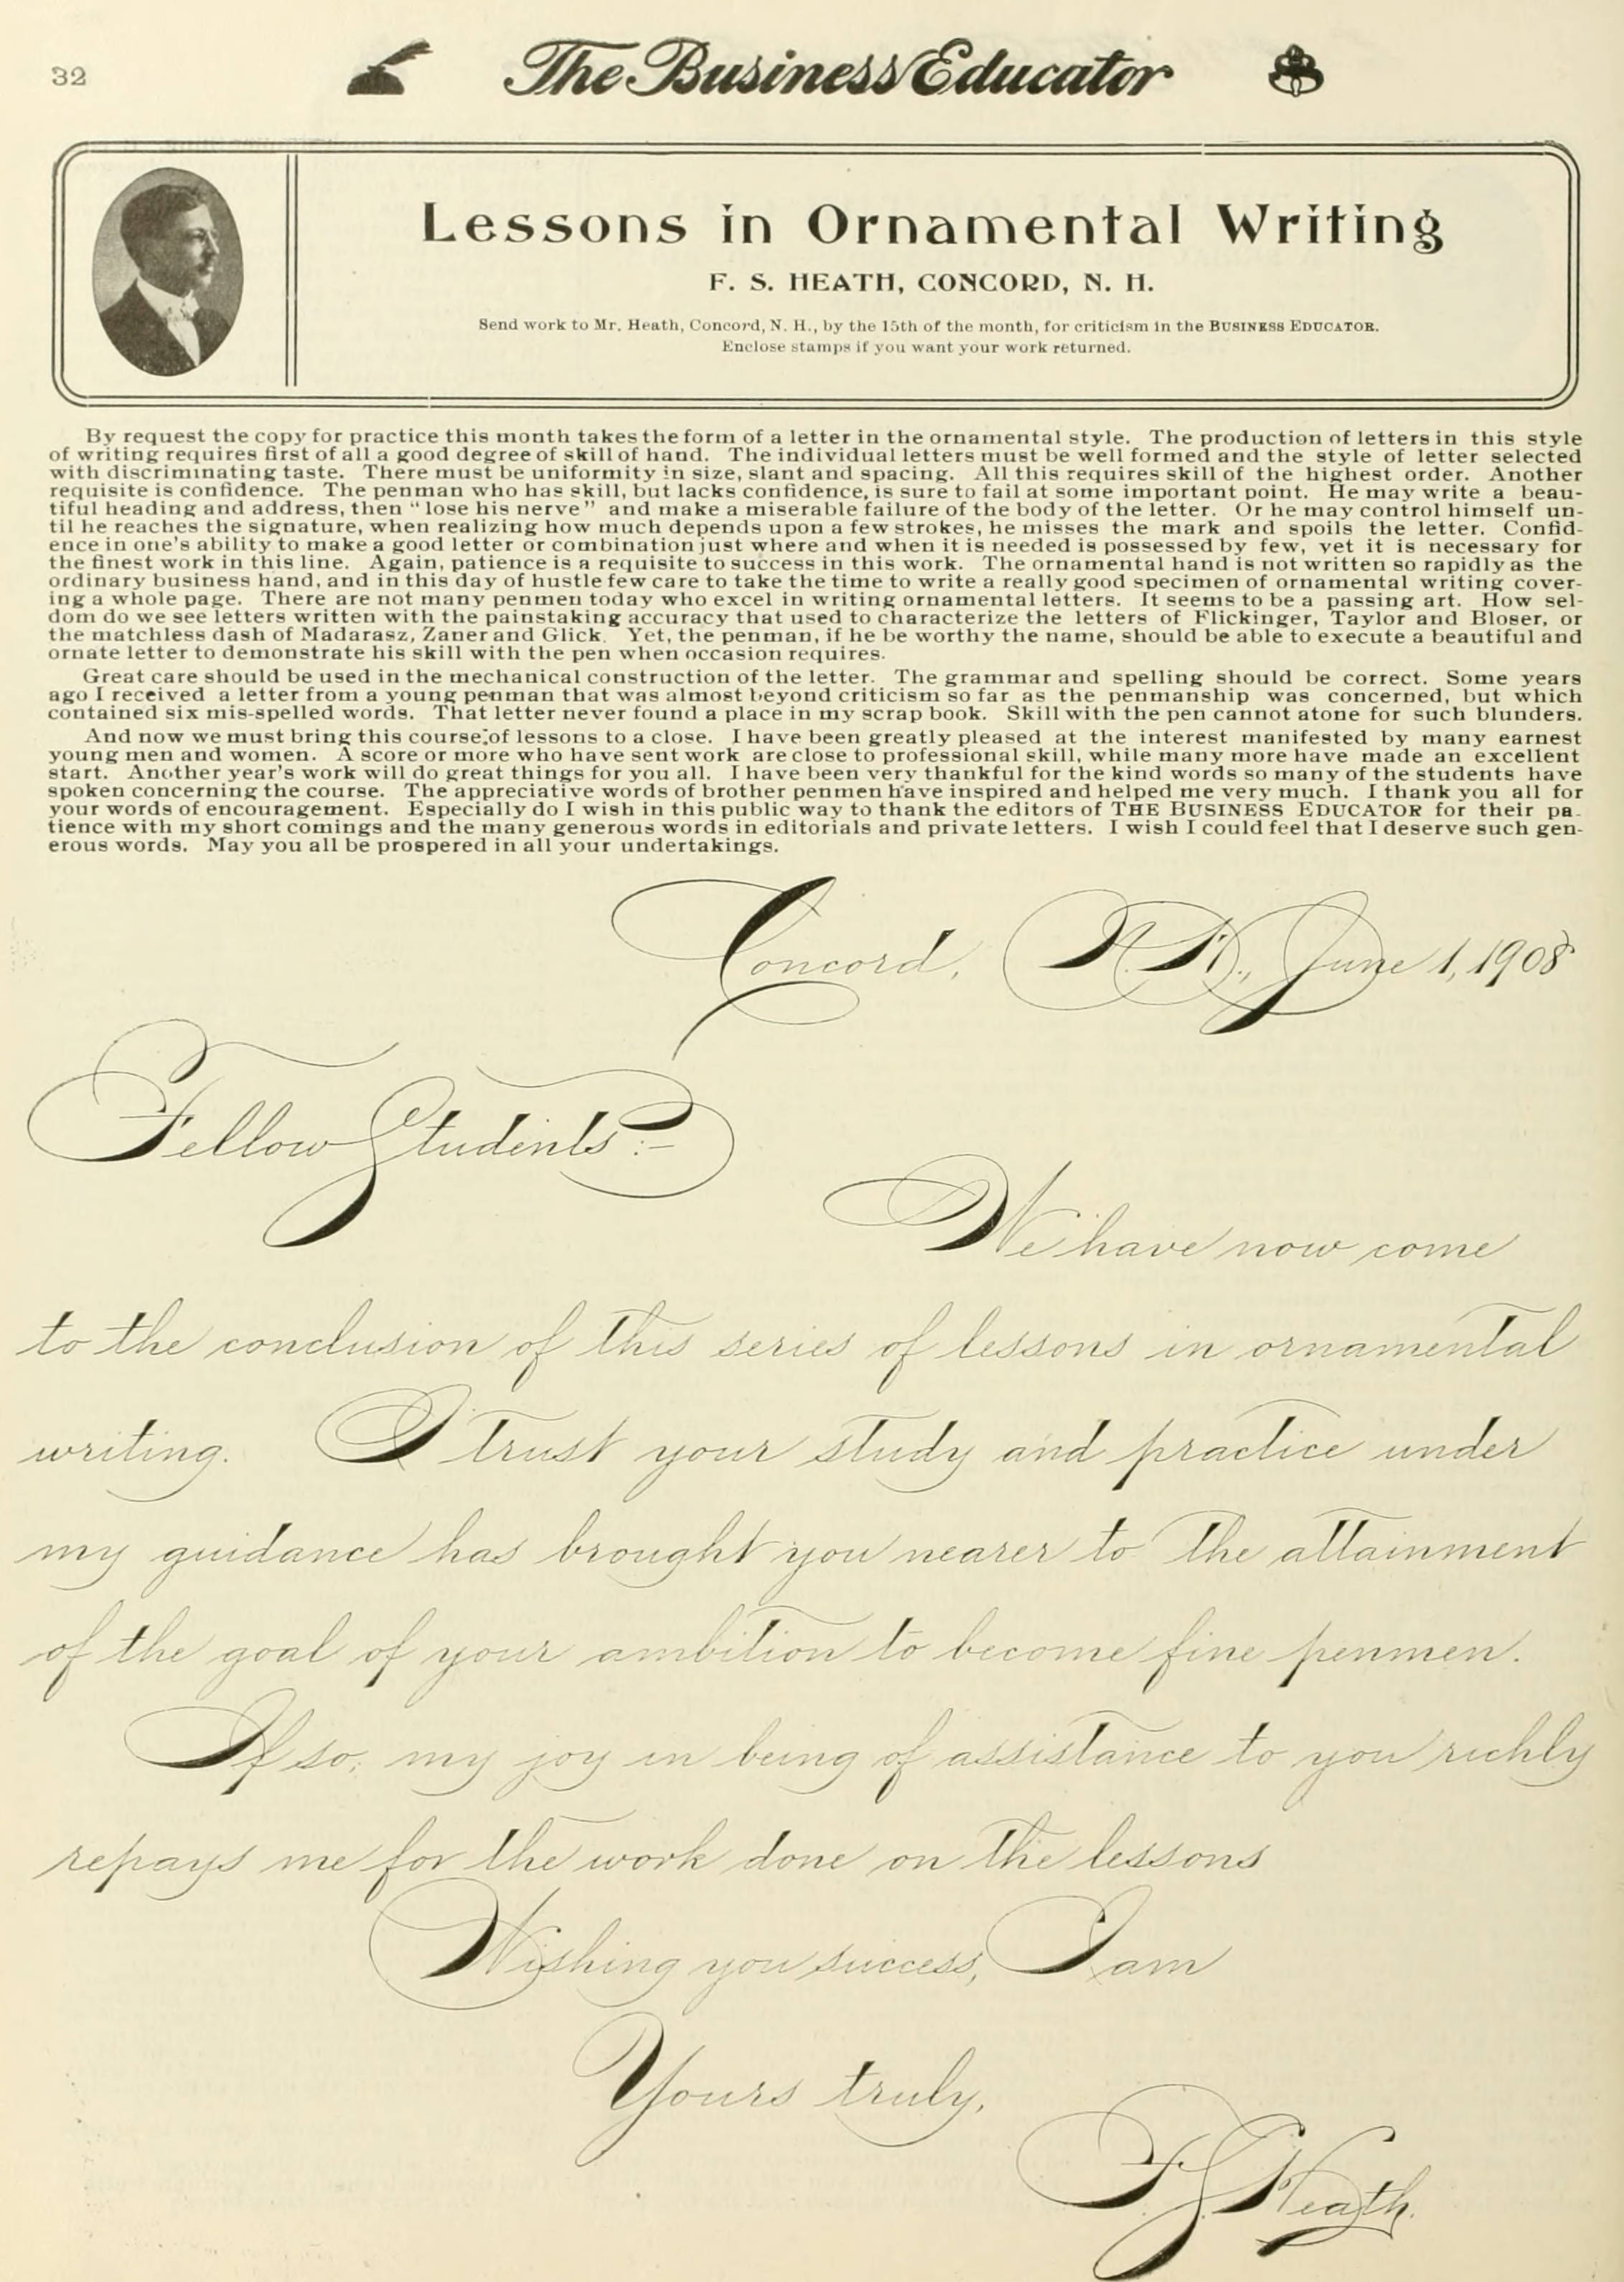 32
The Business Educator
Lessons in Ornamental Writing
F. S. HEATH, CONCORD, N. H.
Send work to Mr. Heath, Concord, N. H., by the 15th of the month, for criticism in the BUSINESS EDUCATOR.
Enclose stamps if you want your work returned.
By request the copy for practice this month takes the form of a letter in the ornamental style. The production of letters in this style
of writing requires first of all a good degree of skill of hand. The individual letters must be well formed and the style of letter selected
with discriminating taste. There must be uniformity in size, slant and spacing. All this requires skill of the highest order. Another
requisite is confidence. The penman who has skill, but lacks confidence, is sure to fail at some important point. He may write a beau-
tiful heading and address, then "lose his nerve" and make a miserable failure of the body of the letter. Or he may control himself un-
til he reaches the signature, when realizing how much depends upon a few strokes, he misses the mark and spoils the letter. Confid-
ence in one's ability to make a good letter or combination just where and when it is needed is possessed by few, yet it is necessary for
the finest work in this line. Again, patience is a requisite to success in this work. The ornamental hand is not written so rapidly as the
ordinary business hand, and in this day of hustle few care to take the time to write a really good specimen of ornamental writing cover-
ing a whole page. There are not many penmen today who excel in writing ornamental letters. It seems to be a passing art. How sel-
dom do we see letters written with the painstaking accuracy that used to characterize the letters of Flickinger, Taylor and Bloser, or
the matchless dash of Madarasz, Zaner and Glick. Yet, the penman, if he be worthy the name, should be able to execute a beautiful and
ornate letter to demonstrate his skill with the pen when occasion requires.
Great care should be used in the mechanical construction of the letter. The grammar and spelling should be correct. Some years
ago I received a letter from a young penman that was almost beyond criticism so far as the penmanship was concerned, but which
contained six mis-spelled words. That letter never found a place in my scrap book. Skill with the pen cannot atone for such blunders.
And now we must bring this course of lessons to a close. I have been greatly pleased at the interest manifested by many earnest
young men and women. A score or more who have sent work are close to professional skill, while many more have made an excellent
start. Another year's work will do great things for you all. I have been very thankful for the kind words so many of the students have
spoken concerning the course. The appreciative words of brother penmen have inspired and helped me very much. I thank you all for
your words of encouragement. Especially do I wish in this public way to thank the editors of THE BUSINESS EDUCATOR for their pa-
tience with my short comings and the many generous words in editorials and private letters. I wish I could feel that I deserve such gen-
erous words. May you all be prospered in all your undertakings.
Concord, N. H., June 1, 1908
Fellow Students:-
We have now come
to the conclusion of this series of lessons in ornamental
writing. I trust your study and practice under
my guidance has brought you nearer to the attainment
of the goal of your ambition to become fine penmen.
If so, my joy in being of assistance to you richly
repays me for the work done on the lessons
Wishing you success, I am
Yours truly,
F. S. Heath.